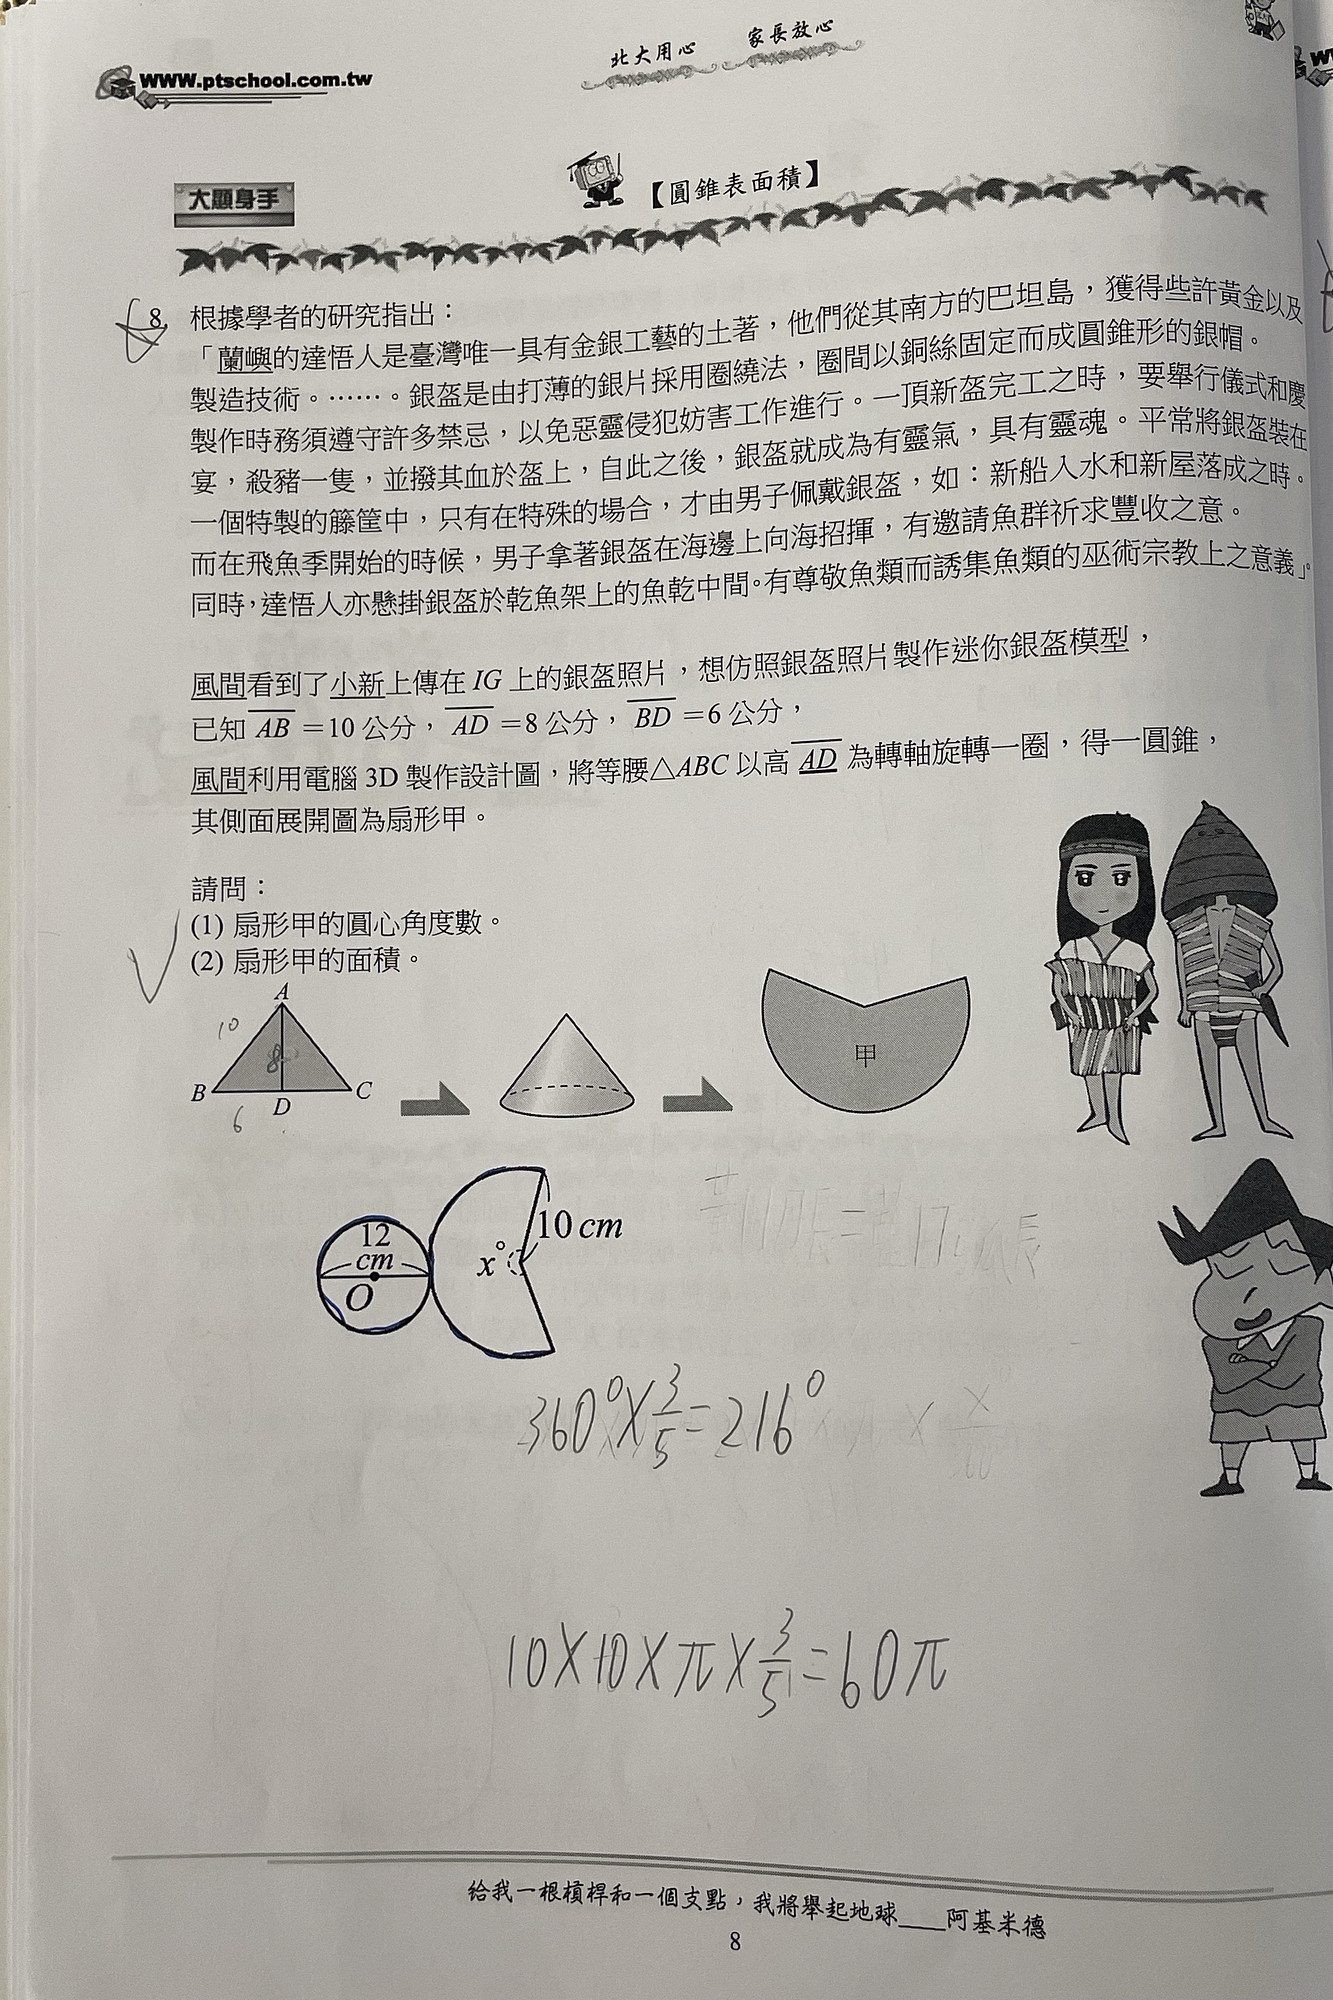 北大用心　家長放心
WWW.ptschool.com.tw
大顯身手
【圓錐表面積】
8. 根據學者的研究指出：
「蘭嶼的達悟人是臺灣唯一具有金銀工藝的土著，他們從其南方的巴坦島，獲得些許黃金以及
製造技術。……。銀盔是由打薄的銀片採用圈繞法，圈間以銅絲固定而成圓錐形的銀帽。
製作時務須遵守許多禁忌，以免惡靈侵犯妨害工作進行。一頂新盔完工之時，要舉行儀式和慶
宴，殺豬一隻，並撥其血於盔上，自此之後，銀盔就成為有靈氣，具有靈魂。平常將銀盔裝在
一個特製的籐筐中，只有在特殊的場合，才由男子佩戴銀盔，如：新船入水和新屋落成之時。
而在飛魚季開始的時候，男子拿著銀盔在海邊上向海招揮，有邀請魚群祈求豐收之意。
同時，達悟人亦懸掛銀盔於乾魚架上的魚乾中間。有尊敬魚類而誘集魚類的巫術宗教上之意義」。
風間看到了小新上傳在 IG 上的銀盔照片，想仿照銀盔照片製作迷你銀盔模型，
已知 AB =10 公分， AD =8 公分， BD =6 公分，
風間利用電腦 3D 製作設計圖，將等腰△ABC 以高 AD 為轉軸旋轉一圈，得一圓錐，
其側面展開圖為扇形甲。
請問：
(1) 扇形甲的圓心角度數。
(2) 扇形甲的面積。
A
10
8
B
D
C
6
甲
12
cm
O
x°
10 cm
360°×3/5=216°
10×10×π×3/5=60π
給我一根槓桿和一個支點，我將舉起地球____阿基米德
8